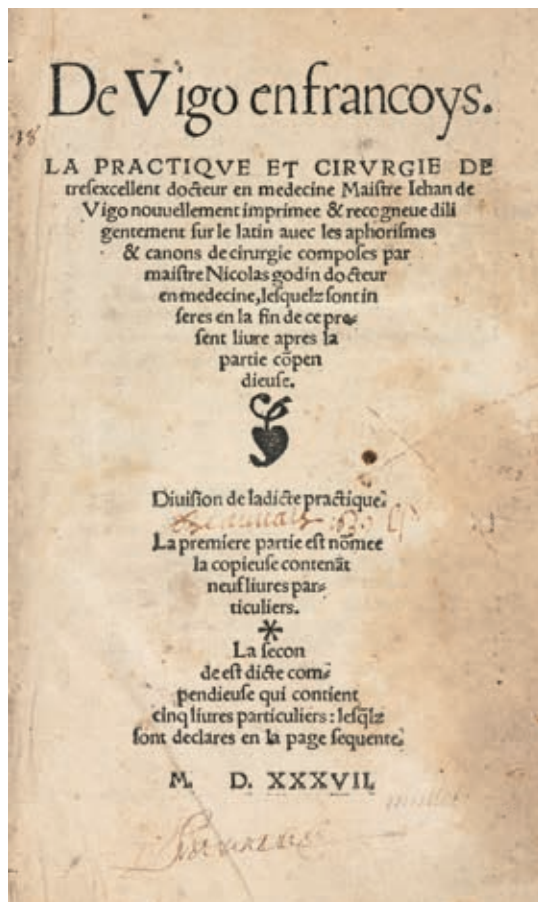 De Vigo en francoys.
LA PRACTIQVE ET CIRVRGIE DE
tresexcellent docteur en medecine Maiſtre Iehan de
Vigo nouuellement imprimee & recogneue dili
gentement ſur le latin auec les aphoriſmes
& canons de cirurgie compoſes par
maiſtre Nicolas godin docteur
en medecine, leſquelz ſont in
ſeres en la fin de ce pre⸗
ſent liure apres la
partie cõpen
dieuſe.
Diuiſion de ladicte practique.
La premiere partie eſt nõmee
la copieuſe contenãt
neuf liures par⸗
ticuliers.
*
La ſecon
de eſt dicte com⸗
pendieuſe qui contient
cinq liures particuliers : leſq̃lz
ſont declares en la page ſequente.
M. D. XXXVII.